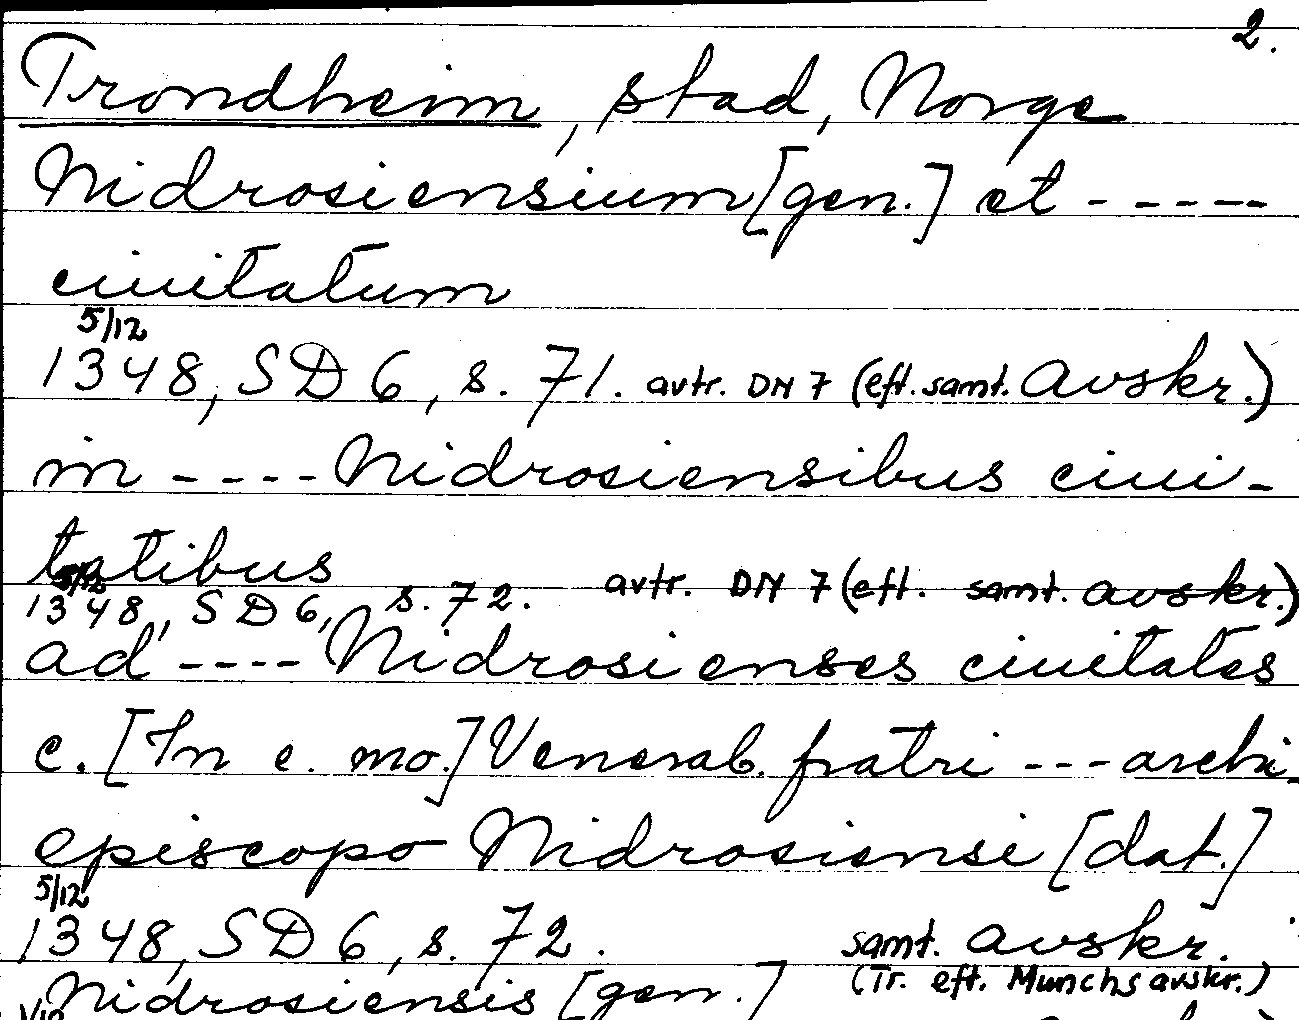 2.
Trondheim, stad, Norge
Nidrosiensium [gen.] et -----
ciuitatum
5/12
1348, SD 6, s. 71. avtr. DN 7 (eft. samt. avskr.)
in ---- Nidrosiensibus ciui-
tatibus
5/12
1348, SD 6, s. 72. avtr. DN 7 (eft. samt. avskr.)
ad ---- Nidrosienses ciuitates
c. [In e. mo.] Venerab. fratri --- archi-
episcopo Nidrosiensi [dat.]
5/12
1348, SD 6, s. 72. samt. avskr.
(Tr. eft. Munchs avskr.)
Nidrosiensis [gen.]